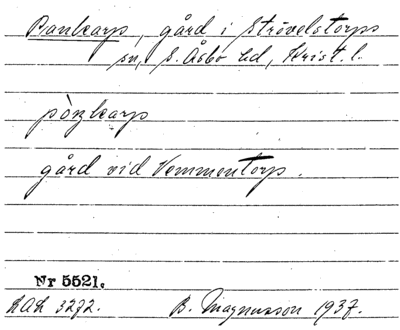 Pankarp, gård i Strövelstorps
sn, S. Åsbo hd, Krist. l.
pòŋkarp
gård vid Vemmentorp.
Nr 5521.
LAL 3272. B. Magnusson 1937.